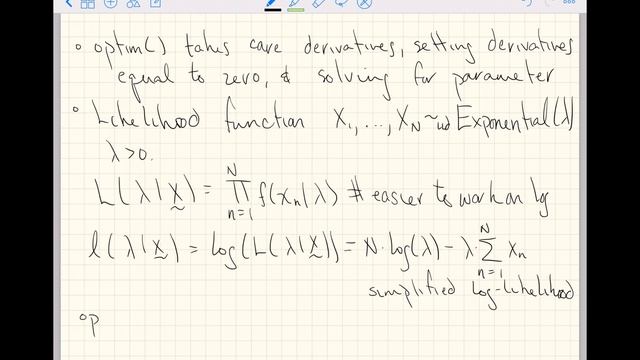 ° optim() takes care derivatives, setting derivatives
equal to zero, & solving for parameter
° Likelihood function X₁, ..., X_N ~iid Exponential(λ)
λ>0.
L(λ|x̰) = ∏_{n=1}^{N} f(x_n|λ) # easier to work on log
l(λ|x̰) = log(L(λ|x̰)) = N·log(λ) - λ·∑_{n=1}^{N} x_n
simplified log-likelihood
° op